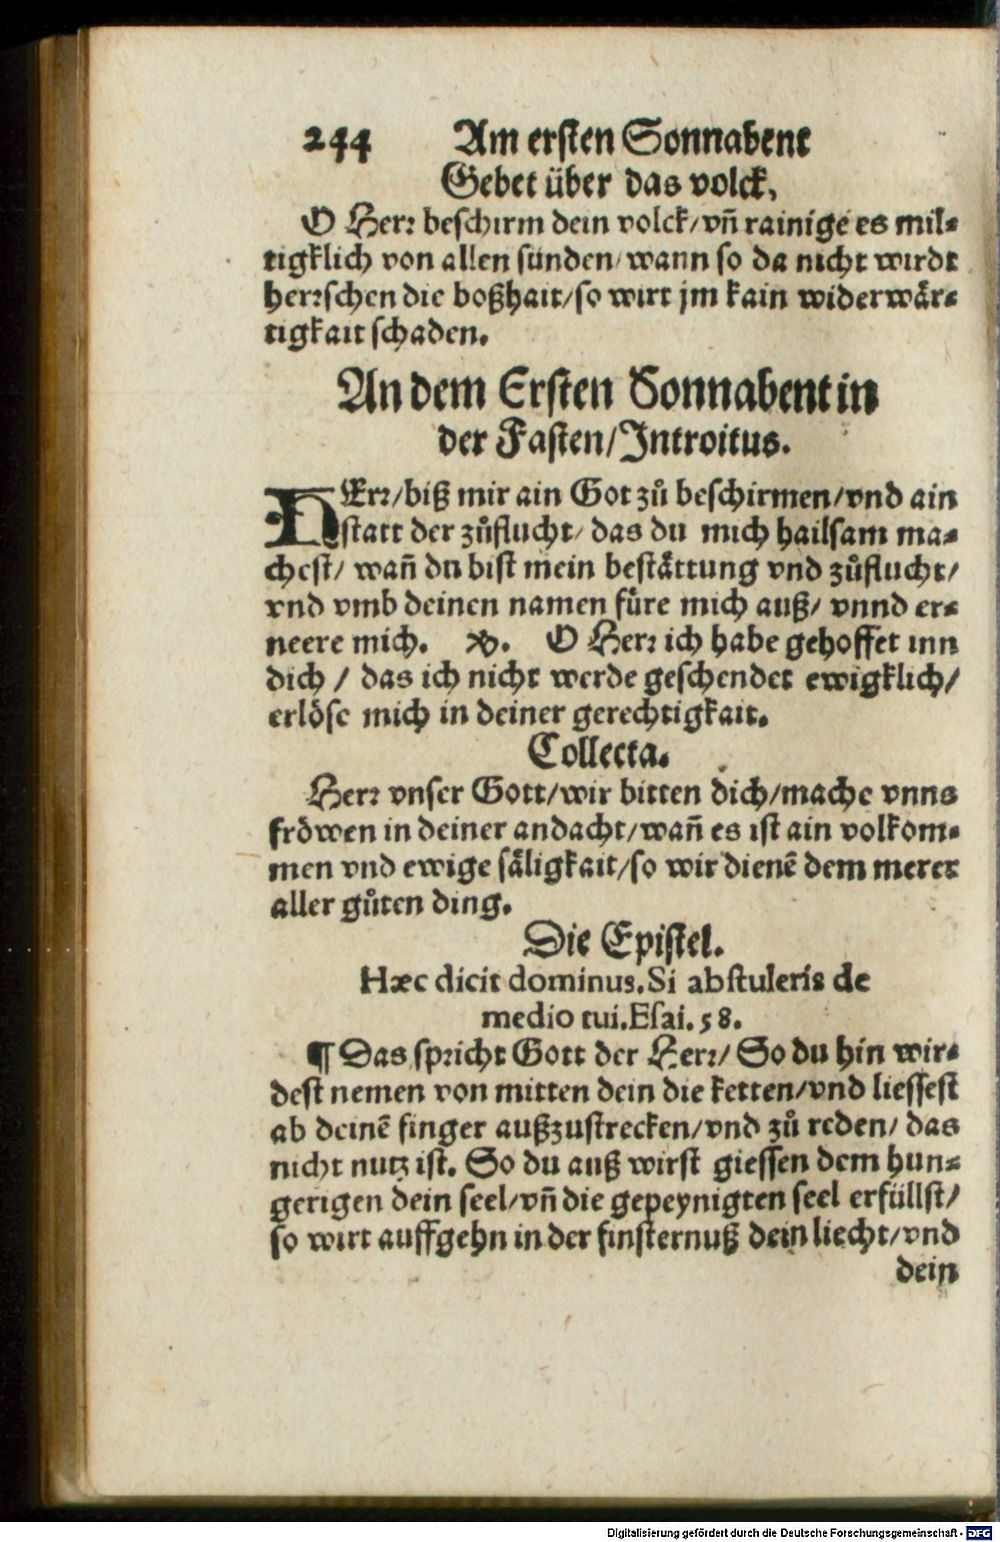 244 Am ersten Sonnabent
Gebet über das volck,
O Herꝛ beschirm dein volck/vñ rainige es mil-
tigklich von allen sünden/wann so da nicht wirdt
herꝛschen die boßhait/so wirt jm kain widerwår-
tigkait schaden.
An dem Ersten Sonnabent in
der Fasten/Introitus.
HErꝛ/biß mir ain Got zů beschirmen/vnd ain
statt der zůflucht/ das du mich hailsam ma-
chest/ wañ du bist mein beståttung vnd zůflucht/
vnd vmb deinen namen fůre mich auß/ vnnd er-
neere mich. ℣. O Herꝛ ich habe gehoffet inn
dich / das ich nicht werde geschendet ewigklich/
erlöse mich in deiner gerechtigkait.
Collecta.
Herꝛ vnser Gott/wir bitten dich/mache vnns
fröwen in deiner andacht/wañ es ist ain volkom-
men vnd ewige såligkait/so wir dienẽ dem merer
aller gůten ding.
Die Epistel.
Hæc dicit dominus. Si abstuleris de
medio tui. Esai. 58.
¶ Das spꝛicht Gott der Herꝛ/ So du hin wir-
dest nemen von mitten dein die ketten/vnd liessest
ab deinẽ finger außzustrecken/vnd zů reden/ das
nicht nutz ist. So du auß wirst giessen dem hun-
gerigen dein seel/vñ die gepeynigten seel erfüllst/
so wirt auffgehn in der finsternuß dein liecht/vnd
dein
Digitalisierung gefördert durch die Deutsche Forschungsgemeinschaft - DFG